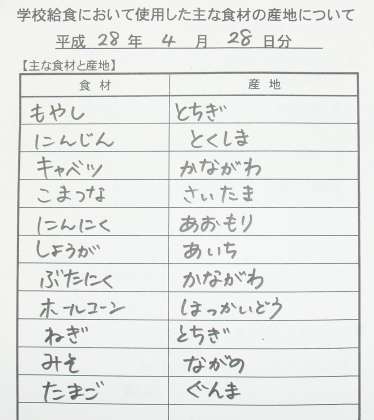 学校給食において使用した主な食材の産地について
平成 28 年 4 月 28 日分
【主な食材と産地】
食材 産地
もやし とちぎ
にんじん とくしま
キャベツ かながわ
こまつな さいたま
にんにく あおもり
しょうが あいち
ぶたにく かながわ
ホールコーン ほっかいどう
ねぎ とちぎ
みそ ながの
たまご ぐんま